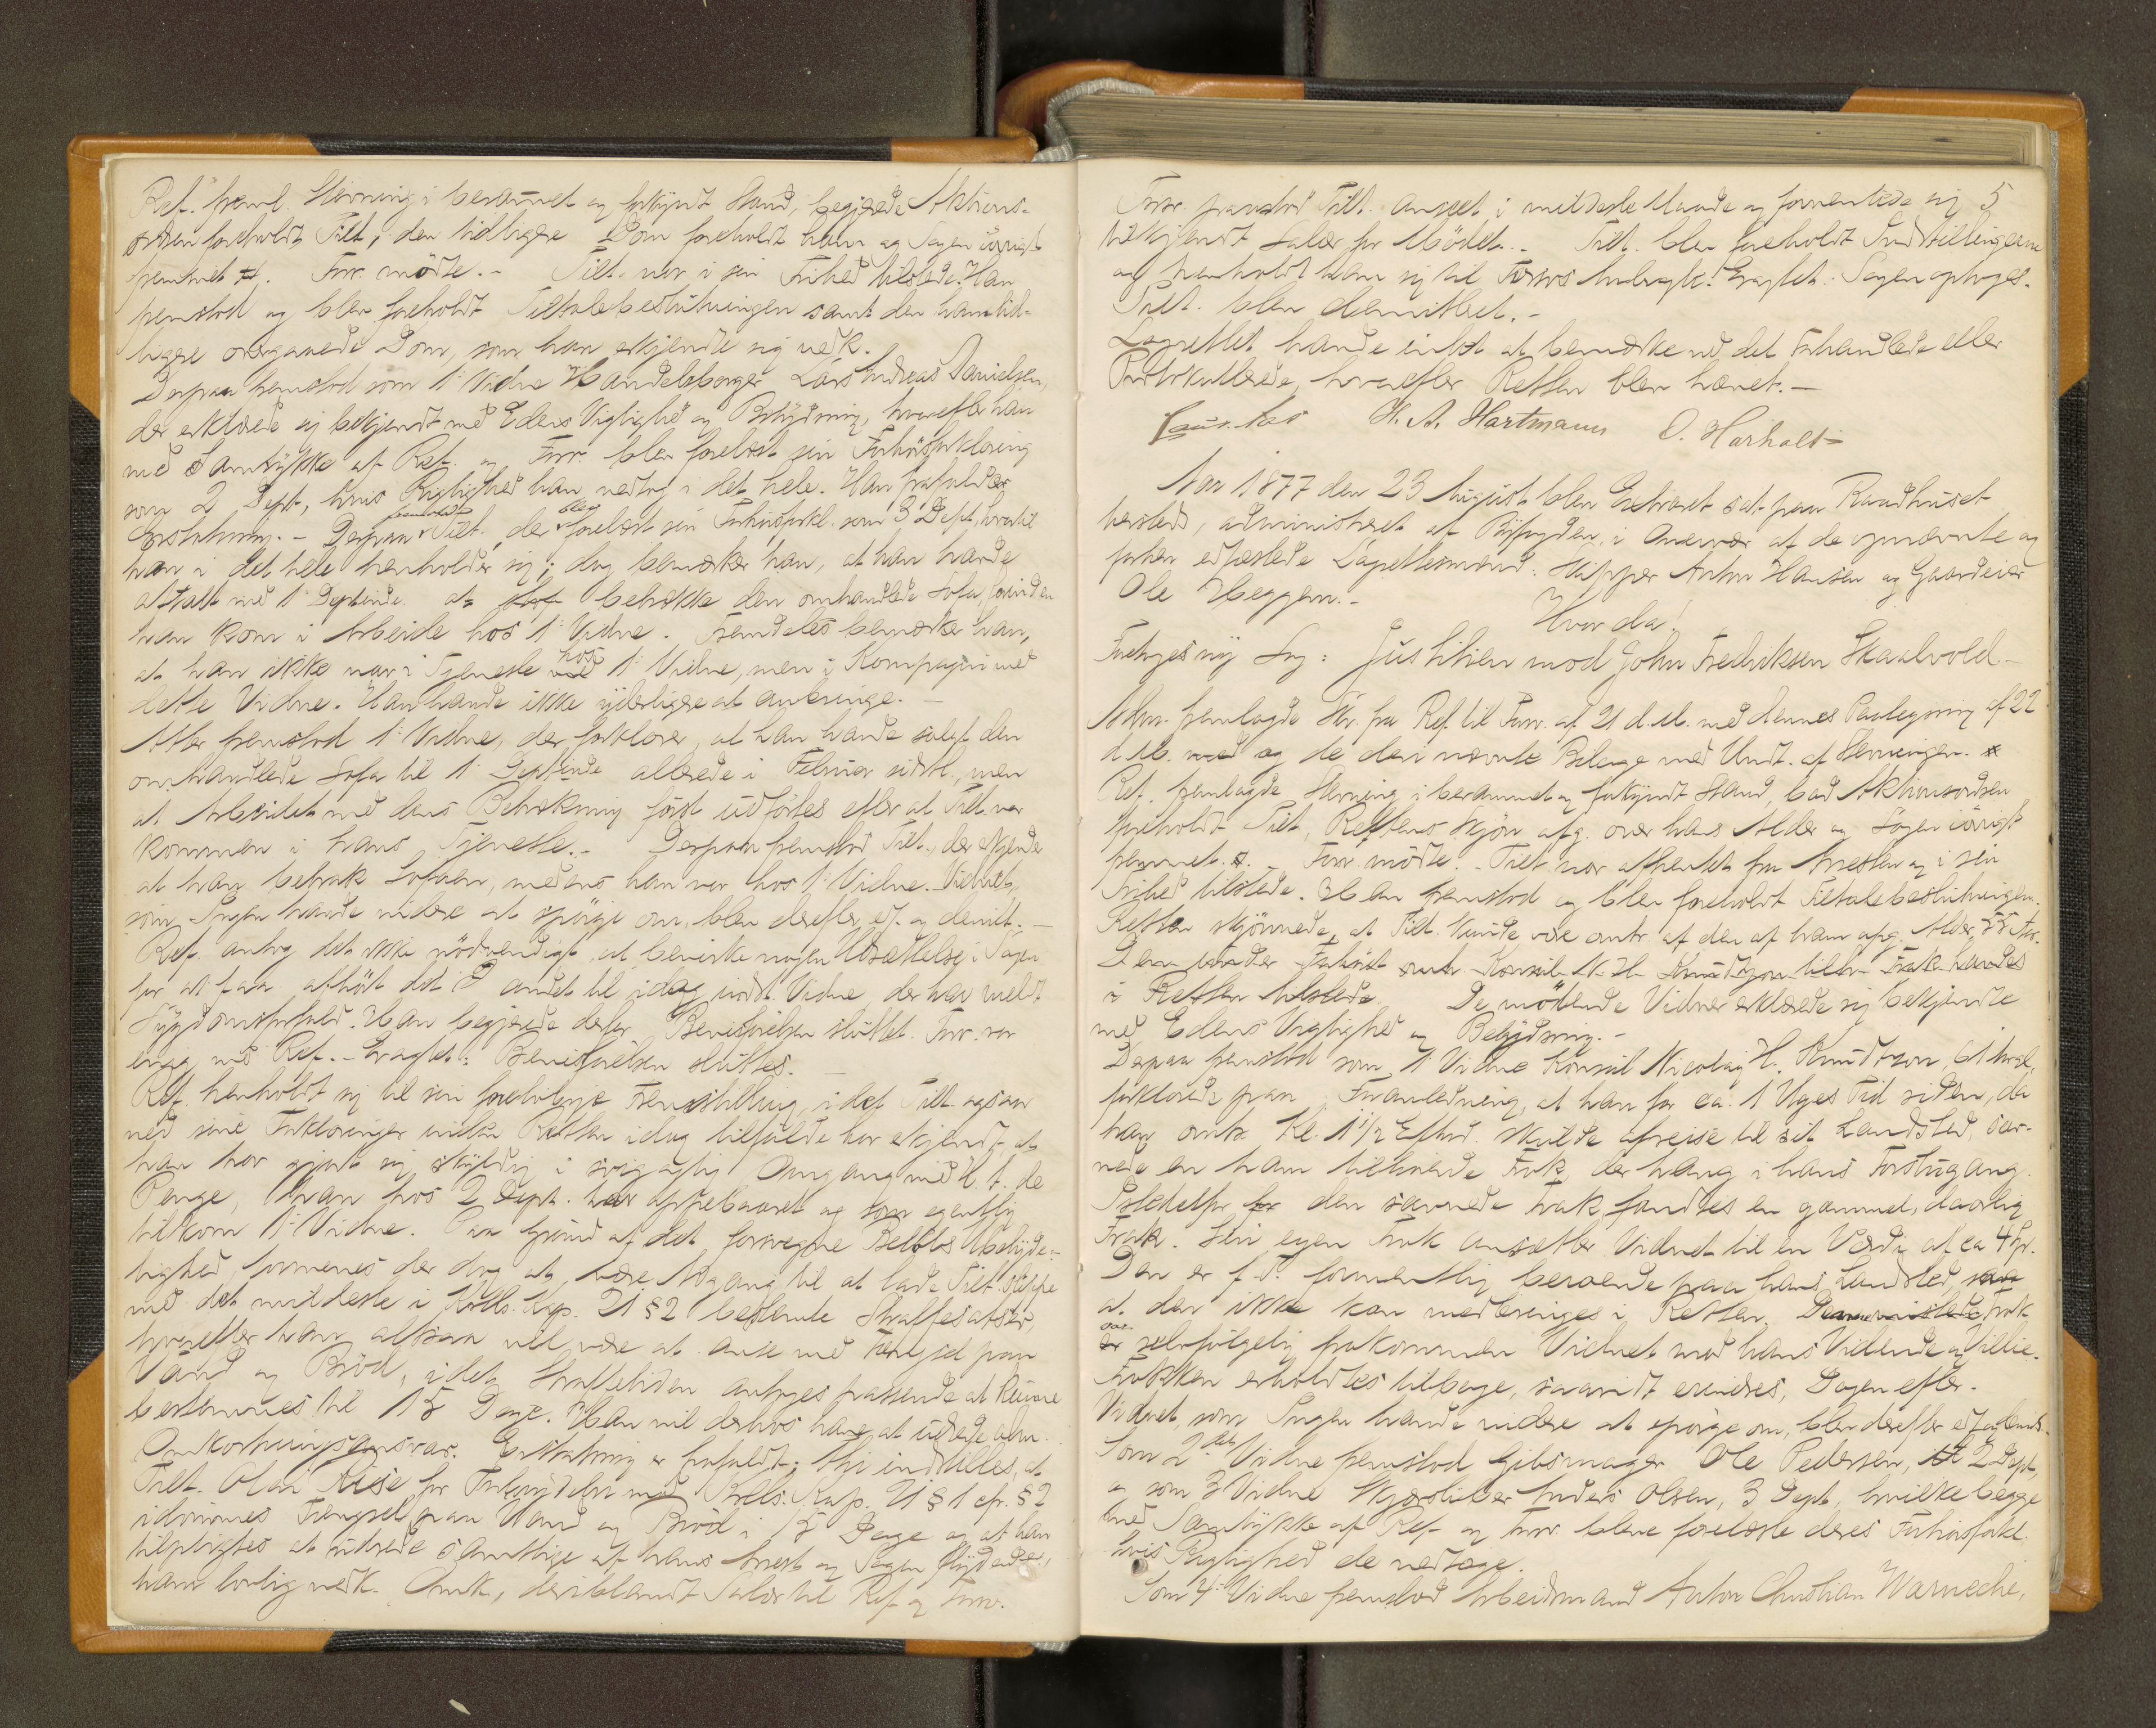 Ref. freml. Stævning i berammet og forkyndt Stand, begjærede Aktions-
ordren foreholdt Tilt., den tidligere Dom foreholdt ham og Sagen iøvrigt
fremmet. Forsv. mødte. - Tilt. var i sin Frihed tilstede. Han
fremstod og blev foreholdt Tiltalebeslutningen samt den ham tid-
ligere overgaaede Dom, som han erkjendte sig vedk.
Derpaa fremstod som 1' Vidne Handelsborger Lars Andreas Danielsen,
der erklærede sig bekjendt med Edens Vigtighed og Betydning, hvorefter han
med Samtykke af Ref. og Forsv. blev forelæst sin Forhørsforklaring
som 2 Dept., hvis Rigtighed han vedtog i det hele. Han frafalder
Erstatning. - Derpaa fremstod Tilt., der blev forelæst sin Forhørsforkl. som 3' Dept., hvortil
han i det hele henholder sig; dog bemærker han, at han havde
aftalt med 1' Deptinde at betrække den omhandlede Sofa, forinden
han kom i Arbeide hos 1' Vidne. Fremdeles bemærker han,
at han ikke var i Tjeneste hos 1' Vidne, men i Kompagni med
dette Vidne. Han havde ikke yderligere at anbringe. -
Atter fremstod 1' Vidne, der forklarer, at han havde solgt den
omhandlede Sofa til 1' Deptinde allerede i Februar sidstl., men
at Arbeidet med dens Betrækning først udførtes efter at Tilt. var
kommen i hans Tjeneste. - Derpaa fremstod Tilt., der erkjender
at han betrak Sofaen, medens han var hos 1' Vidne. Vidnet,
som Ingen havde videre at spørge om, blev derefter edf. og demitt. -
Ref. antog det ikke nødvendigt at bevirke nogen Udsættelse i Sagen
for at faa afhørt det andet til idag indst. Vidne, der har meldt
Sygdomsforfald. Han begjærede derfor Bevisførelsen sluttet. Forsv. var
enig med Ref. - Eragtet: Bevisførelsen sluttes. -
Ref. henholdt sig til sin foreløbige Fremstilling, idet Tilt. ogsaa
ved sine Forklaringer inden Retten idag tilfulde har erkjendt, at
han har gjort sig skyldig i svigagtig Omgang med H. t. de
Penge, han hos 2 Dept. har oppebaaret og som egentlig
tilkom 1' Vidne. Paa Grund af det forvegne Beløbs Ubetyde-
lighed formenes der dog at være Adgang til at lade Tilt. slippe
med det mildeste i Krlls. Kap. 21 § 2 bestemte Straffesats,
hvorefter han altsaa vil være at anse med Fængsel paa
Vand og Brød, idet Straffetiden antages passende at kunne
bestemmes til 15 Dage. Han vil derhos have at udrede alm.
Omkostningsansvar. Erstatning er frafaldt; thi indstilles, at
Tilt. Olai Riise for Forbrydelse mod Krlls. Kap. 21 § 1 cfr. § 2
idømmes Fængsel paa Vand og Brød i 15 Dage og at han
tilpligtes at udrede samtlige af hans Arrest og Sagen flydende,
ham lovlig vedk. Omk., deriblandt Salær til Ref. og Forsv.
Forsv. paastod Tilt. anseet i mildeste Maade og forventede sig 5
tilkjendt Salær for Mødet. - Tilt. blev foreholdt Indstillingerne
og henholdt han sig til Forsvs Anbragte. Eragtet: Sagen optages.
Tilt. blev demitteret. -
Lagrettet havde intet at bemærke ved det Forhandlede eller
Protokollerede, hvorefter Retten blev hævet. -
H. A. Hartmann O. Harhalt -
Aar 1877 den 23 August blev Extraret sat paa Raadhuset
hersteds, administreret af Byfogden, i Overvær af de opnævnte og
forhen edfæstede Lagrettesmænd: Skipper Anton Hansen og Gaardeier
Ole Heggem. -
Hvor da!
Foretoges ny Sag: Justitien mod John Fredriksen Skaalvold. -
Adm. fremlagde Skr. fra Ref. til Forsv. af 21 d. M. med dennes Paategning af 22
d. M. og de deri nævnte Bilage med Undt. af Stævningen.
Ref. fremlagde Stævning i berammet og forkyndt Stand, bad Aktionsordren
foreholdt Tilt., Rettens Skjøn afg. over hans Alder og Sagen iøvrigt
fremmet. - Forsv. mødte. - Tilt. var afhentet fra Arresten og i sin
Frihed tilstede. Han fremstod og blev foreholdt Tiltalebeslutningen.
Retten skjønnede, at Tilt. kunde være omtr. af den af ham opg. Alder, 55 Aar.
Den under Forhøret omh. Konsul N. H. Knudtzon tilh. Frak havdes
i Retten tilstede. De mødende Vidner erklærede sig bekjendte
med Edens Vigtighed og Betydning. -
Derpaa fremstod som 1' Vidne Konsul Nicolay H. Knudtzon, 61 Aar,
forklarede paa Foranledning, at han for ca. 1 Uges Tid siden, da
han omtr. Kl. 1 1/2 Efterm. skulde afreise til sit Landsted, sav-
nede en ham tilhørende Frak, der hang i hans Forstugang.
Istedetfor den savnede Frak fandtes en gammel, daarlig
Frak. Sin egen Frak ansætter Vidnet til en Værdi af ca 4 Kr.
Den er f. T. formentlig beroende paa hans Landsted,
at den ikke kan medbringes i Retten. Frak
er selvfølgelig frakommen Vidnet mod hans Vidende og Villie.
Frakken erholdtes tilbage, saavidt erindres, Dagen efter.
Vidnet, som Ingen havde videre at spørge om, blev derefter edf. og demitt.
Som 2det Vidne fremstod Gibsmager Ole Pedersen, 2 Dept.,
og som 3 Vidne Skjærsliber Anders Olsen, 3 Dept., hvilke begge
med Samtykke af Ref. og Forsv. bleve forelæste deres Forhørsforkl.
hvis Rigtighed de vedtoge.
Som 4' Vidne fremstod Arbeidsmand Anton Christian Warneche,